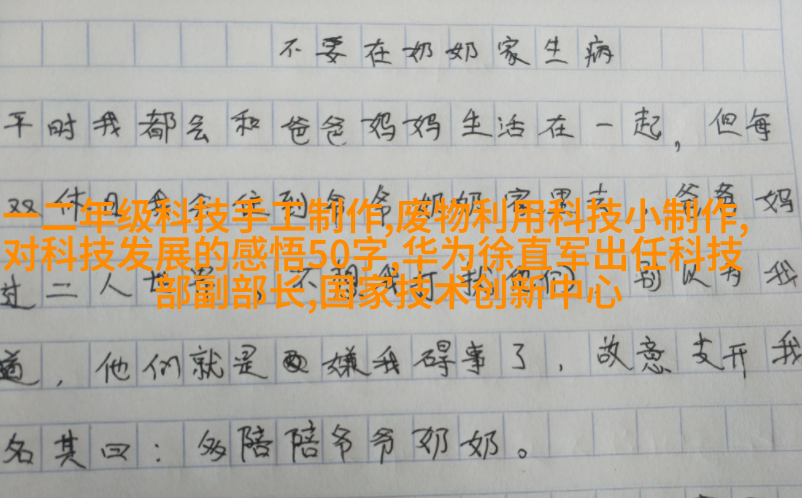 不要在奶奶家生病
平时我都会和爸爸妈妈生活在一起，但每
双休日我会 到爷爷奶奶家 爸爸妈
一二年级科技手工制作,废物利用科技小制作,
对科技发展的感悟50字,华为徐直军出任科技
部副部长,国家技术创新中心
过二人世 不 我打扰他们 别以为我
道，他们就是嫌我碍事了，故意支开我
名其曰：多陪陪爷爷奶奶。